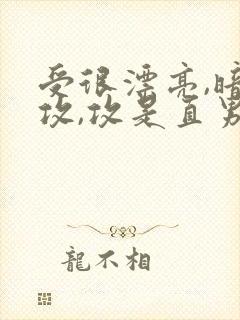 受很漂亮,暗
攻,攻是直男
龍不相